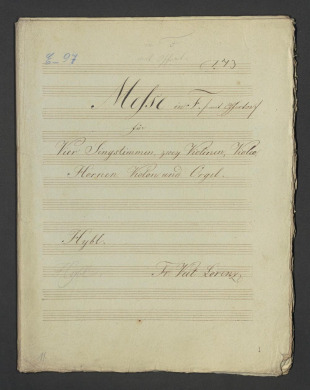 I–97
173
Messe in F. sammt Offertori
für
Vier Singstimmen, zwey Violinen, Viola
Hornen Violon und Orgel.
Hybl.
Fr. Veit Lorenz